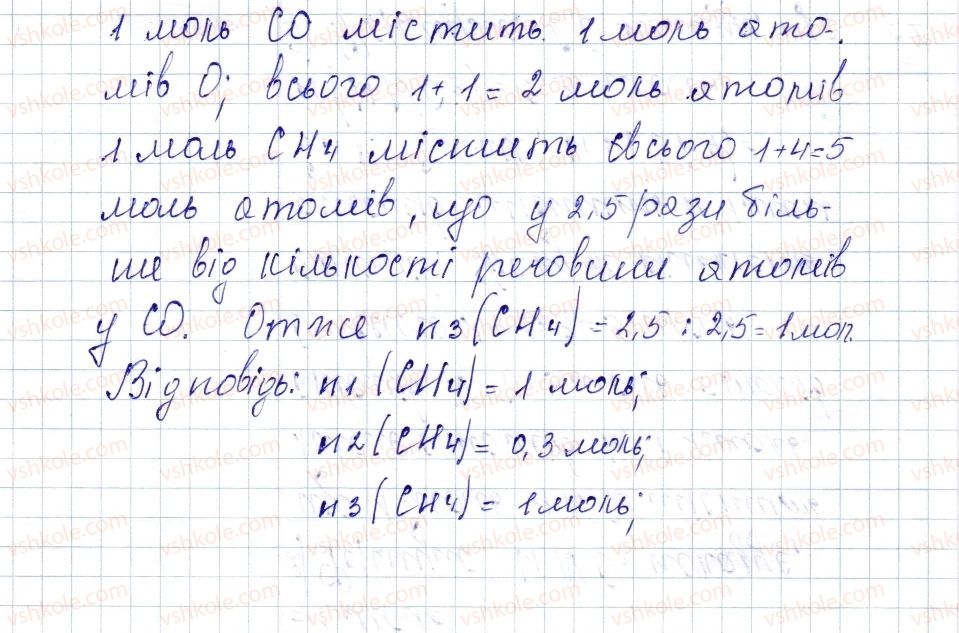 1 моль CO містить 1 моль ато-
мів O; всього 1+1=2 моль атомів
1 моль CH4 містить всього 1+4=5
моль атомів, що у 2,5 рази біль-
ше від кількості речовини атомів
у CO. Отже n3(CH4)=2,5:2,5=1мол.
Відповідь: n1(CH4)=1 моль;
n2(CH4)=0,3 моль;
n3(CH4)=1моль;
vshkole.com